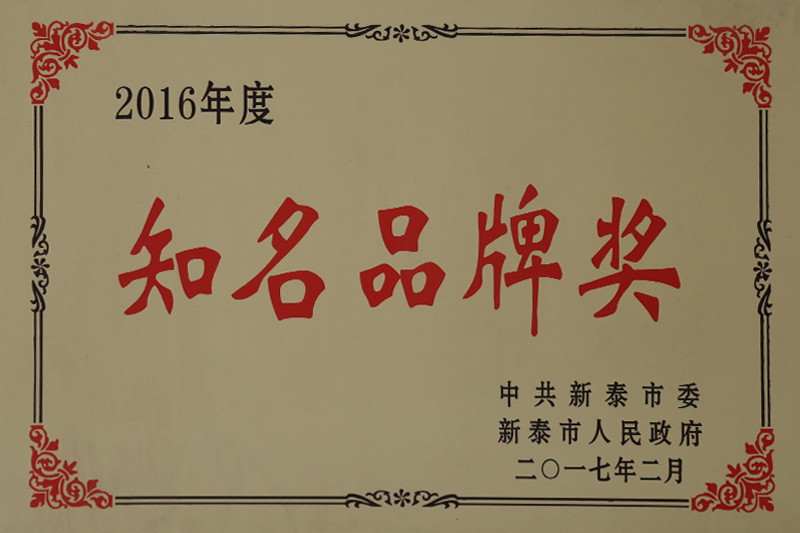 2016年度
知名品牌奖
中共新泰市委
新泰市人民政府
二〇一七年二月